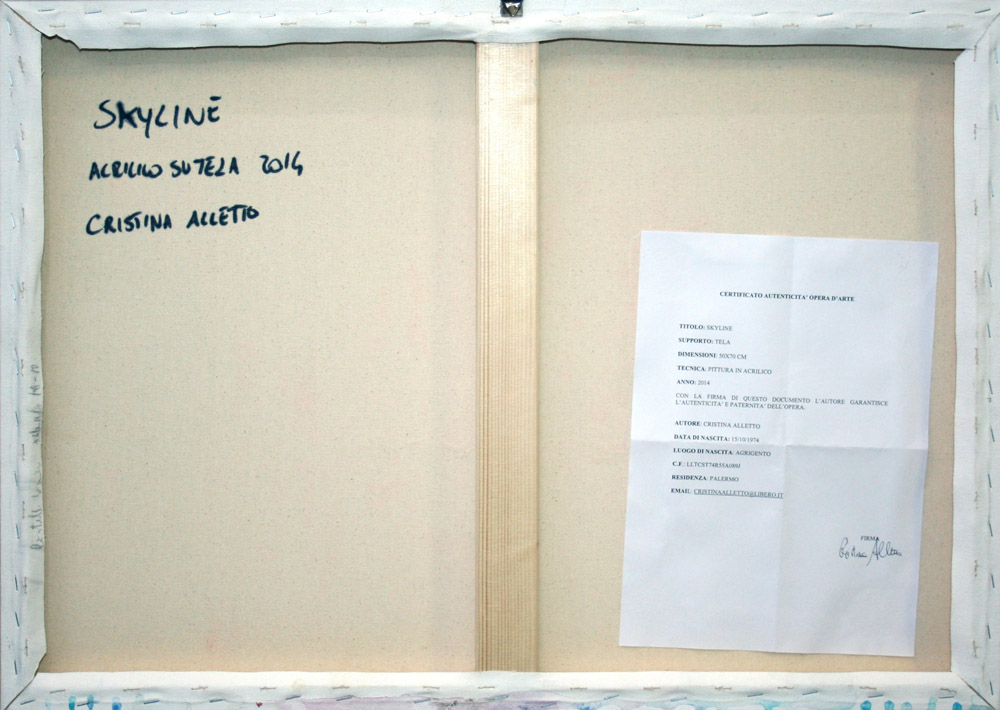 SKYLINE
ACRILICO SU TELA 2014
CRISTINA ALLETTO
CERTIFICATO AUTENTICITA' OPERA D'ARTE
TITOLO: SKYLINE
SUPPORTO: TELA
DIMENSIONE: 50X70 CM
TECNICA: PITTURA IN ACRILICO
ANNO: 2014
CON LA FIRMA DI QUESTO DOCUMENTO L'AUTORE GARANTISCE
L'AUTENTICITA' E PATERNITA' DELL'OPERA.
AUTORE: CRISTINA ALLETTO
DATA DI NASCITA: 15/10/1974
LUOGO DI NASCITA: AGRIGENTO
C.F.: LLTCST74R55A089J
RESIDENZA: PALERMO
EMAIL: CRISTINAALLETTO@LIBERO.IT
FIRMA